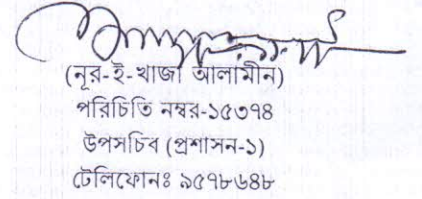 (নূর-ই-খাজা আলামীন)
পরিচিতি নম্বর-১৫৩৭৪
উপসচিব (প্রশাসন-১)
টেলিফোনঃ ৯৫৭৮৬৪৮